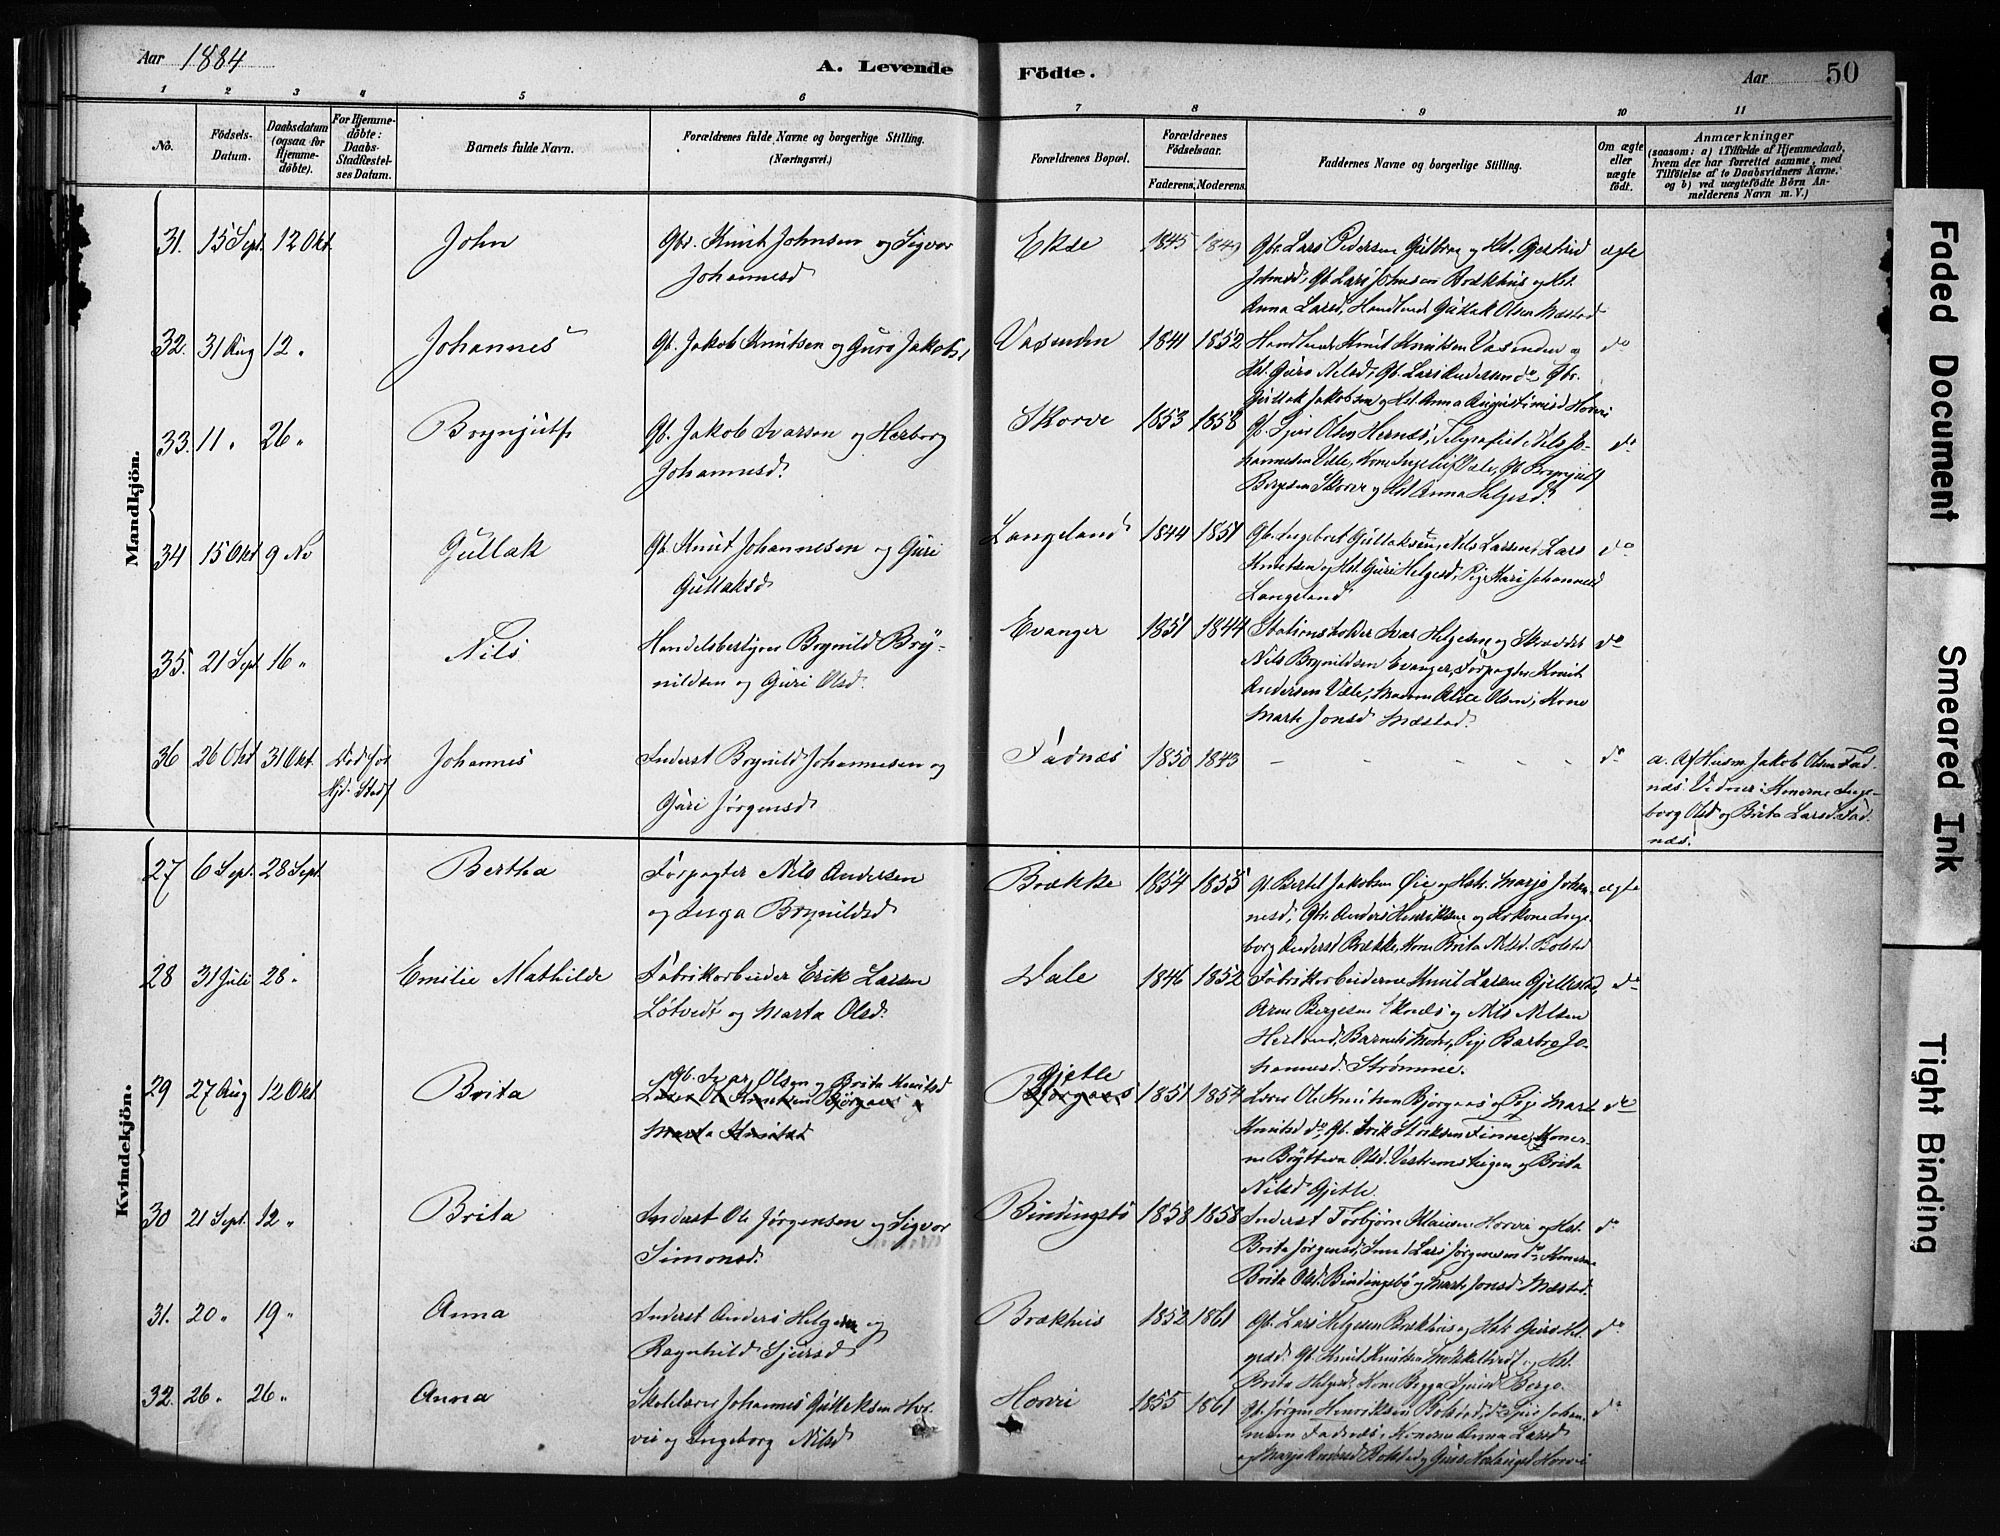 Aar 1884
A. Levende
Födte.
Aar 50
1 2 3 4 5 6 7 8 9 10 11
No.
Födsels-
Datum.
Daabsdatum
(ogsaa for
Hjemme-
döbte).
For Hjemme-
döbte:
Daabs-
Stadfæstel-
ses Datum.
Barnets fulde Navn.
Forældrenes fulde Navne og borgerlige Stilling.
(Næringsvei.)
Forældrenes Bopæl.
Forældrenes
Födselsaar.
Faderens. Moderens.
Faddernes Navne og borgerlige Stilling.
Om ægte
eller
uægte
födt.
Anmærkninger
(saasom: a) i Tilfælde af Hjemmedaab,
hvem der har forrettet samme, med
Tilföielse af to Daabsvidners Navne,
og b) ved uægtefödte Börn An-
melderens Navn m. V.)
Mandkjön.
31. 15 Sept. 12 Okt. John
Gbr. Knut Johnsen og Sigvor
Johannesd
Ekse 1845 1849
Gbr. Lars Pedersen Gullbraa og Hst. Gjertrud
Johnsd, Gb. Lars Johnsen Brækhus og Hst.
Anna Larsd, Handlende Gullak Olsen Mæstad
ægte
32. 31 Aug 12 " Johannes
Gb. Jakob Knutsen og Guro Jakobsd
Vasenden 1841 1852
Handlende Knut Knutsen Vasenden og
Hst. Guro Nilsd, Gb. Lars Andersen do, Gbr.
Gullak Jakobsen og Hst. Anna Augustinusd Horvei
do
33. 11 " 26 " Brynjulf
Gb. Jakob Ivarson og Herborg
Johannesd.
Skorve 1853 1858
Gb. Sjur Olsen Hernæs, Telegrafist Nils Jo-
hannesen Væle, Kone Ingeleif Væle, Gb. Brynjulf
Børgesen Skorve og Hst. Anna Helgesd.
do
34 15 Okt 9 Nov Gullak
Gb. Knut Johannesen og Guri
Gullaksd
Langeland 1844 1851
Gb. Ingebret Gullaksen, Nils Larsen, Lars
Knutsen og Hst. Guri Helgesd, Pige Kari Johannesd
Langeland
do
35. 21 Sept 16 " Nils
Handelsbestyrer Brynild Bry-
nildsen og Guri Olsd.
Evanger 1851 1844
Stationsholder Ivar Helgesen og Skrædder
Nils Brynildsen Evanger, Forpagter Knut
Andersen Væle, Madam Alice Olsen, Kone
Marta Jonsd Mæstad.
do
36 26 Okt 31 Okt. Død før
Hj. Stadf
Johannes
Inderst Brynild Johannesen og
Guri Jørgensd
Fadnæs 1850 1843
- - - - -
do
a. Af Husm. Jakob Olsen Fad-
næs. Vidner: Konerne Inge-
borg Olsd og Brita Larsd Fad-
næs.
Kvindekjön.
27 6 Sept. 28 Sept. Bertha
Forpagter Nils Andersen
og Inga Brynildsd
Brække 1854 1855
Gb. Bertel Jakobsen Øie og Hstr. Marjo Johan-
nesd, Gbr. Anders Henriksen og Kone Inge-
borg Andersd Brække, Kone Brita Nilsd. Bolstad
ægte
28 31 Juli 28 " Emilie Mathilde
Fabrikarbeider Erik Larsen
Løtvedt og Marta Olsd.
Dale 1846 1852
Fabrikarbeiderne Knut Larsen Gjellestad,
Arne Bergesen Eknæs og Nils Nilsen
Herland, Barnets Moder, Pige Barbra Jo-
hannesd. Strømme.
do
29 27 Aug 12 Okt Brita
Gb. Ivar Olsen og Brita Knutsd
Læs Ole Knutsen Bjørgaas og
Marta Knutsd
Gjetle
Bjørgaas 1851 1854
Læs Ole Knutsen Bjørgaas og Pige Marta
Knutsd do, Gb. Erik Eriksen Finne, Koner-
ne Bryttera Olsd. Vestrem og Brita
Nilsd Gjetle
do
30 21 Sept. 12 " Brita
Inderst Ole Jørgensen og Sigvor
Simonsd.
Bindingsbø 1858 1858
Inderst Torbjørn Horvei og Hst.
Brita Jørgensd, Lars Jørgensen do, Konerne
Brita Olsd. Bindingsbø og Marta Jonsd Mæstad.
do
31. 20 " 19 " Anna
Inderst Anders Helgesen og
Ragnhild Sjursd
Brækhus 1852 1861
Gb. Lars Helgesen Brækhus og Hst. Guro Hel-
gesd. Gb. Knut Knutsen og Hst.
Brita Helgesd, Kone Brita Sjursd Berge
do
32. 26 " 26 " Anna
Skolelærer Johannes Gullaksen Hor-
vei og Ingeborg Nilsd
Horvei 1855 1861
Gb. Jørgen Henriksen Bolstad, do Sjur Johan-
nesen Fadnæs, Konerne Anna Larsd
og Marjo Andersd Bolstad og Guro Horvei
do
Faded Document
Smeared Ink
Tight Binding